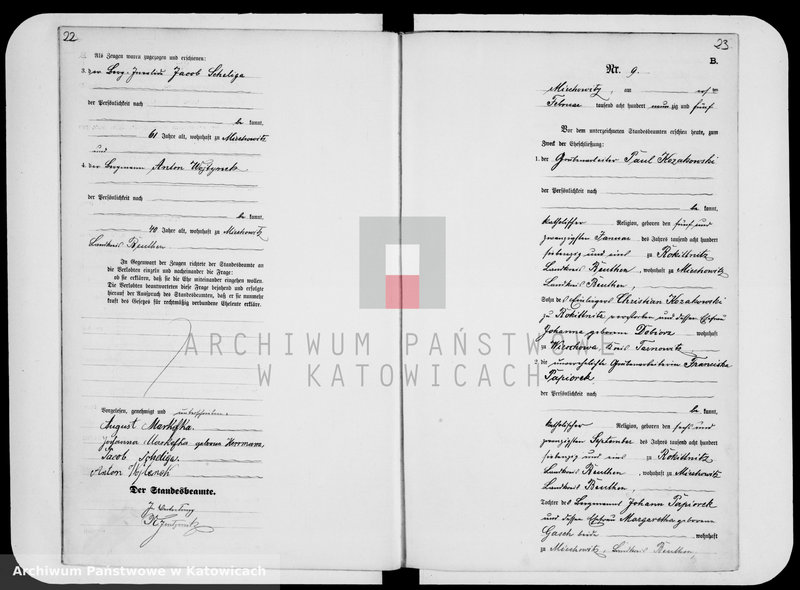 22
Als Zeugen waren zugezogen und erschienen:
3. der Berg-Invalide Jacob Scheliga
der Persönlichkeit nach
be kannt,
61 Jahre alt, wohnhaft zu Miechowitz
und
4. der Bergmann Anton
der Persönlichkeit nach
be kannt,
40 Jahre alt, wohnhaft zu Miechowitz
Landkreis Beuthen
In Gegenwart der Zeugen richtete der Standesbeamte an
die Verlobten einzeln und nacheinander die Frage:
ob sie erklären, daß sie die Ehe miteinander eingehen wollen.
Die Verlobten beantworteten diese Frage bejahend und erfolgte
hierauf der Ausspruch des Standesbeamten, daß er sie nunmehr
kraft des Gesetzes für rechtmäßig verbundene Eheleute erkläre.
Vorgelesen, genehmigt und unterschrieben.
August Markefka.
Johanna Markefka geborene Herrmann,
Jacob Scheliga.
Anton
Der Standesbeamte.
23
B.
Nr. 9.
Miechowitz, am
Februar tausend acht hundert neun zig und fünf
Vor dem unterzeichneten Standesbeamten erschien heute, zum
Zweck der Eheschließung:
1. der Grubenarbeiter Paul Kozakowski
der Persönlichkeit nach
be kannt,
katholischer Religion, geboren den fünf und
zwanzigsten Januar des Jahres tausend acht hundert
siebenzig und eins zu Rokittnitz
Landkreis Beuthen, wohnhaft zu Miechowitz
Landkreis Beuthen,
Sohn des Einliegers Christian Kozakowski
zu Rokittnitz verstorben und dessen Ehefrau
Johanna geborenen Dobiorz wohnhaft
zu Wieschowa, Kreis Tarnowitz
2. die unverehelichte Grubenarbeiterin Franciska
Papiorek
der Persönlichkeit nach
be kannt,
katholischer Religion, geboren den sechs und
zwanzigsten September des Jahres tausend acht hundert
siebenzig und eins zu Rokittnitz
Landkreis Beuthen, wohnhaft zu Miechowitz
Landkreis Beuthen,
Tochter des Bergmannes Johann Papiorek
und dessen Ehefrau Margaretha geborenen
Gasch beide wohnhaft
zu Miechowitz, Landkreis Beuthen,
ARCHIWUM PAŃSTWOWE
W KATOWICACH
Archiwum Państwowe w Katowicach